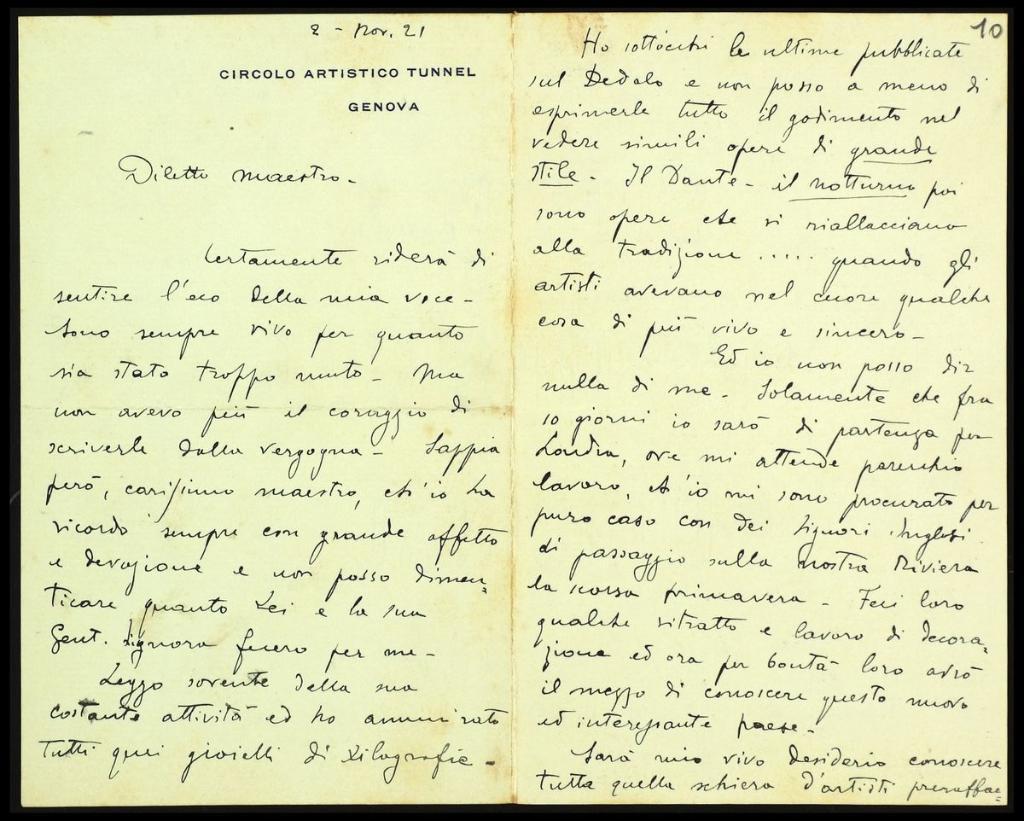 2 - Nov. 21
CIRCOLO ARTISTICO TUNNEL
GENOVA
Diletto maestro -
Certamente riderà di
sentire l'eco della mia voce -
Sono sempre vivo per quanto
sia stato troppo muto - Ma
non avevo più il coraggio di
scriverle dalla vergogna - Sappia
però, carissimo maestro, ch'io La
ricordo sempre con grande affetto
e devozione e non posso dimen=
ticare quanto Lei e la sua
Gent. Signora fecero per me -
Leggo sovente della sua
costante attività ed ho ammirato
tutti quei gioielli di xilografie -
10
Ho sott'occhi le ultime pubblicate
sul Dedalo e non posso a meno di
esprimerle tutto il godimento nel
vedere simili opere di grande
stile - Il Dante - il notturno poi
sono opere che si riallacciano
alla tradizione ..... quando gli
artisti avevano nel cuore qualche
cosa di più vivo e sincero -
Ed io non posso dir
nulla di me - Solamente che fra
10 giorni io sarò di partenza per
Londra, ove mi attende parecchio
lavoro, ch'io mi sono procurato per
puro caso con dei Signori Inglesi
di passaggio sulla nostra Riviera
la scorsa primavera - Feci loro
qualche ritratto e lavoro di decora=
zione ed ora per bontà loro avrò
il mezzo di conoscere questo nuovo
ed interessante paese -
Sarà mio vivo desiderio conoscere
tutta quella schiera d'artisti preraffae=